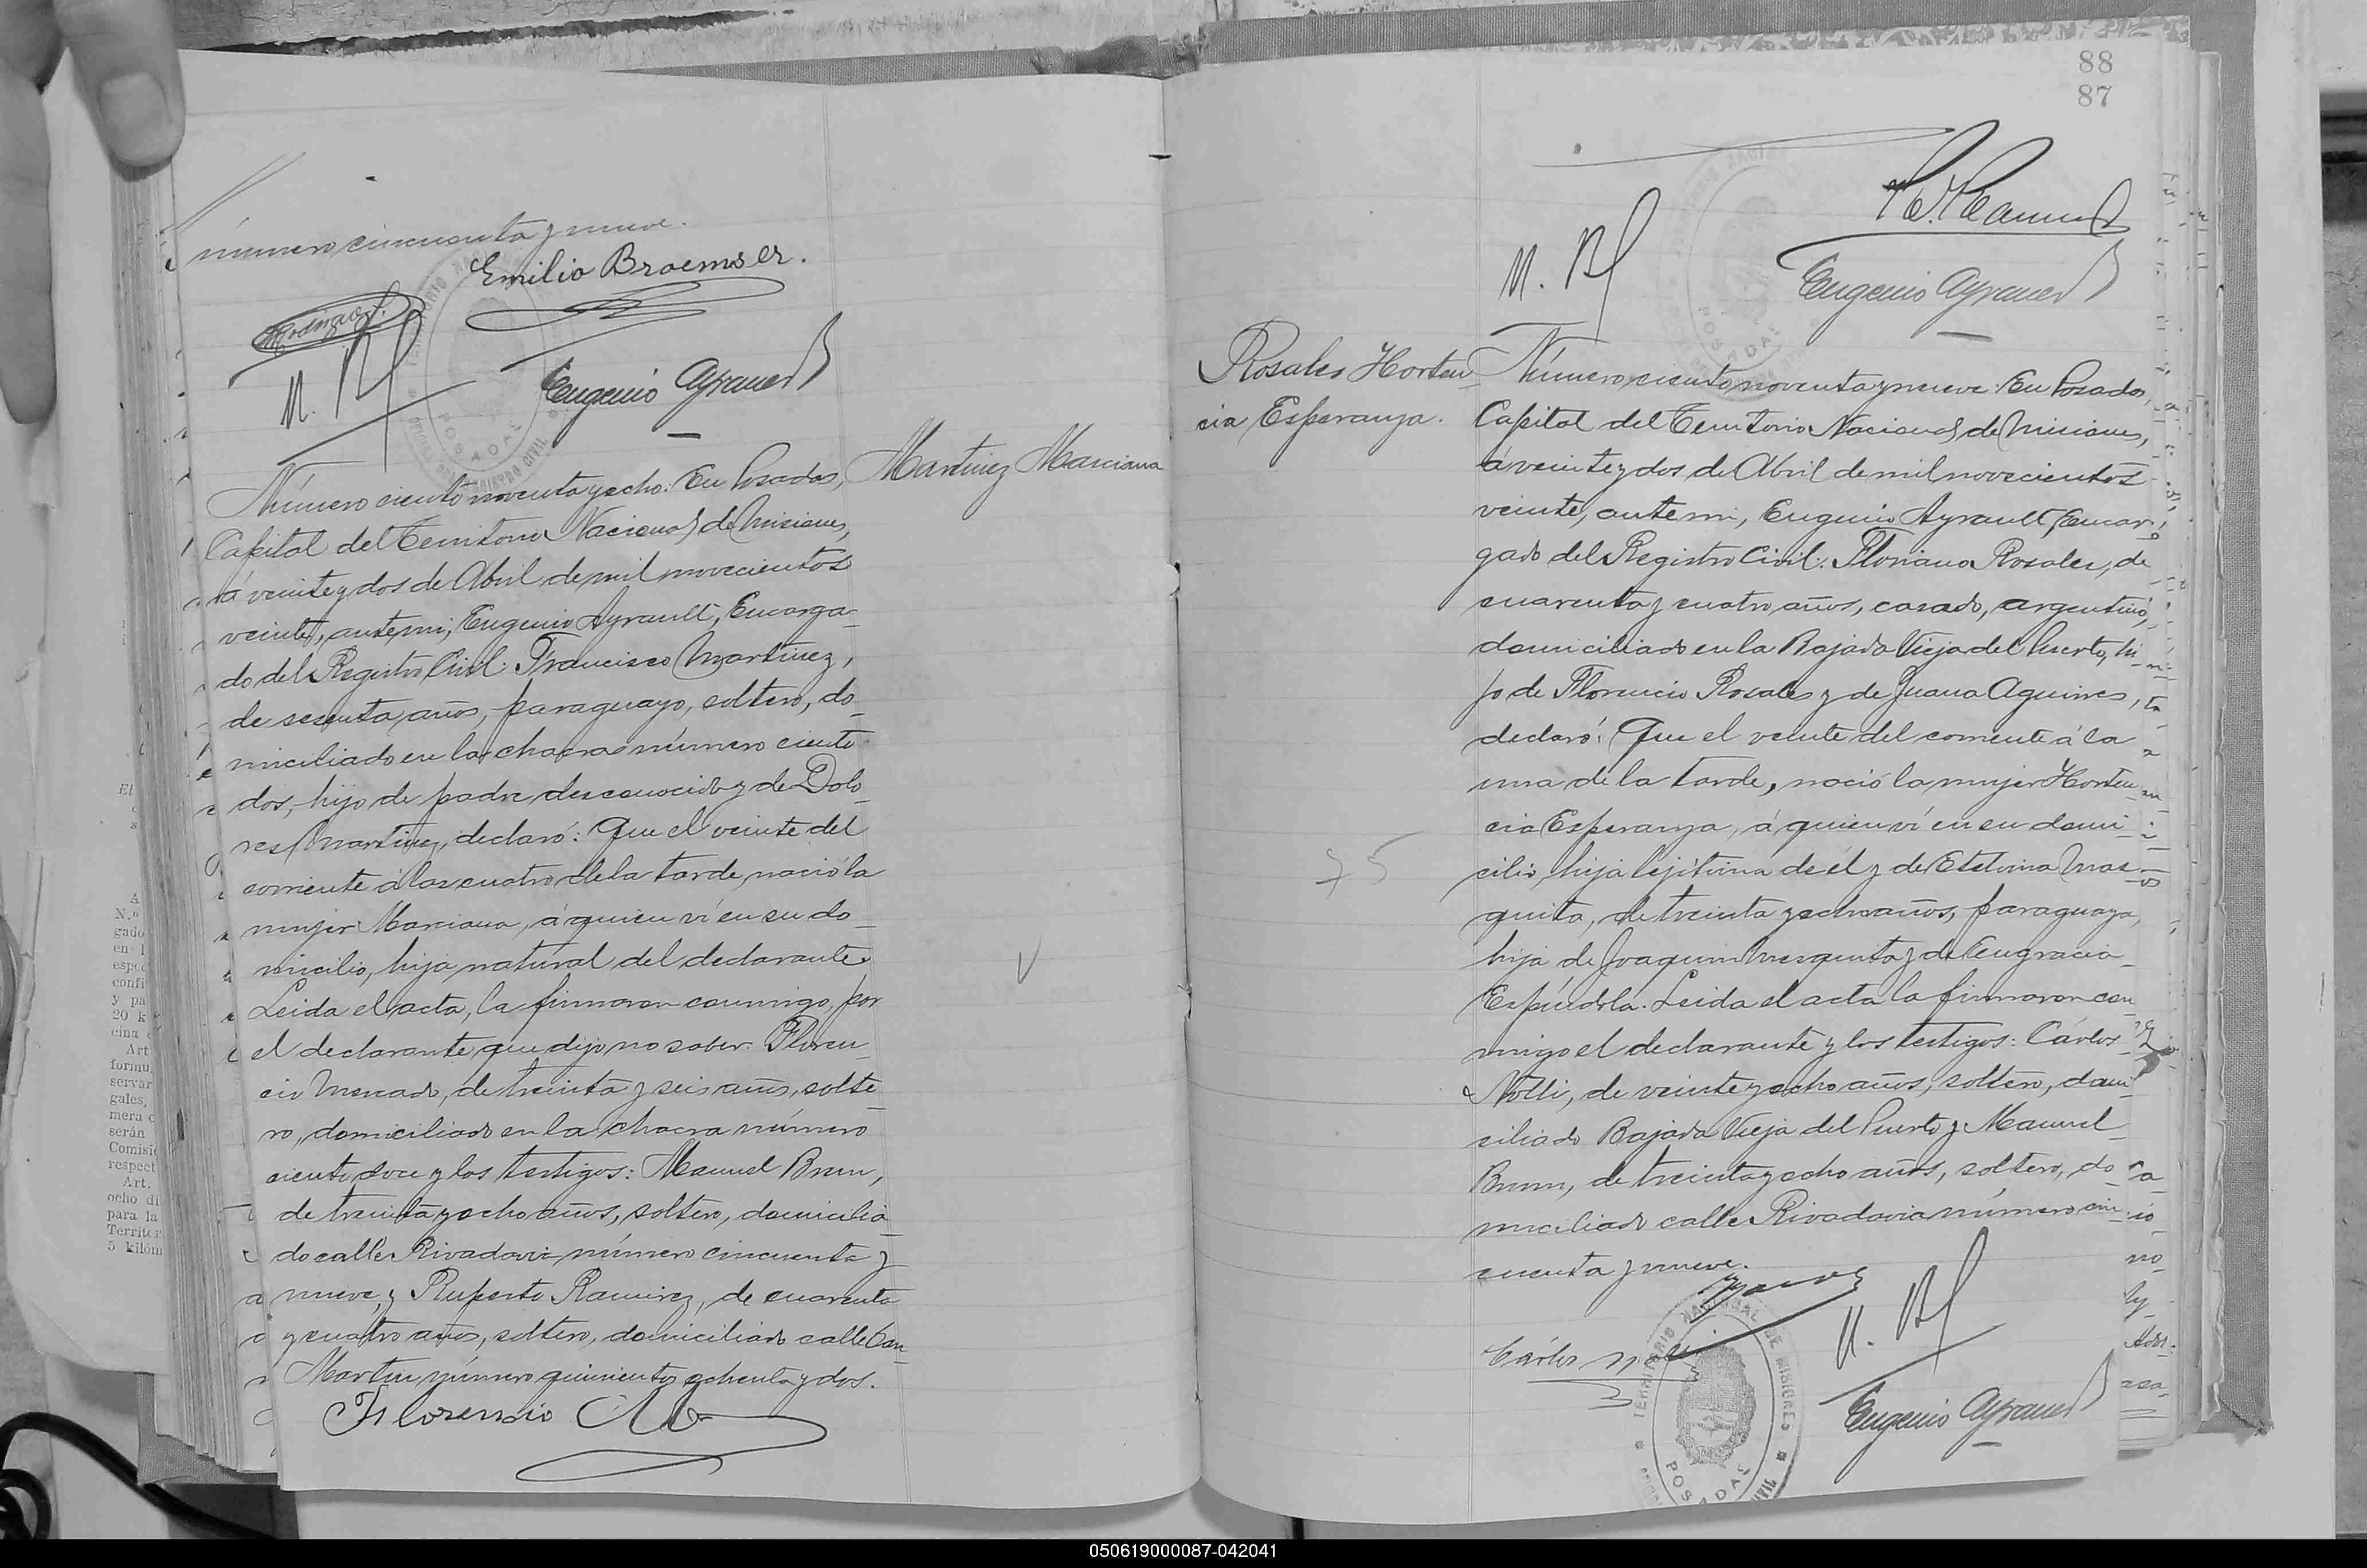 número cincuenta y nueve.
Emilio Braemser.
M. B
Eugenio Ayrault
TERRITORIO
POSADAS
REGISTRO CIVIL
Martinez Marciana
Número ciento noventa y ocho: En Posadas,
Capital del Territorio Nacional de Misiones,
á veinte y dos de Abril de mil novecientos
veinte, ante mi, Eugenio Ayrault, Encarga-
do del Registro Civil: Francisco Martinez,
de sesenta años, paraguayo, soltero, do-
miciliado en la chacra número ciento
dos, hijo de padre desconocido y de Dolo-
res Martinez, declaró: Que el veinte del
corriente á las cuatro de la tarde, nació la
mujer Marciana, á quien ví en su do-
micilio, hija natural del declarante.
Leida el acta, la firmaron conmigo, por
el declarante que dijo no saber: Floren-
cio Mercado, de treinta y seis años, solte-
ro, domiciliado en la chacra número
ciento doce y los testigos: Manuel Brun,
de treinta y ocho años, soltero, domicilia-
do calle Rivadavia número cincuenta y
nueve, y Ruperto Ramirez, de cuarenta
y cuatro años, soltero, domiciliado calle San
Martin número quinientos ochenta y dos.
Florensio M
88
87
M. B
Eugenio Ayrault
POSADAS
Rosales Horten-
cia Esperanza.
Número ciento noventa y nueve: En Posadas,
Capital del Territorio Nacional de Misiones,
á veinte y dos de Abril de mil novecientos
veinte, ante mi, Eugenio Ayrault, Encar-
gado del Registro Civil: Floriano Rosales, de
cuarenta y cuatro años, casado, argentino,
domiciliado en la Bajada Vieja del Puerto, hi-
jo de Florencio Rosales y de Juana Aguirres,
declaró: Que el veinte del corriente á la
una de la tarde, nació la mujer Horten-
cia Esperanza, á quien ví en su domi-
cilio, hija lejitima de él y de Etelvina Mas-
quita, de treinta y ocho años, paraguaya,
hija de Joaquin Mesquita y de Engracia
Espíndola. Leida el acta la firmaron con-
migo el declarante y los testigos: Cárlos
Nolli, de veinte y ocho años, soltero, domi-
ciliado Bajada Vieja del Puerto y Manuel
Brun, de treinta y ocho años, soltero, do-
miciliado calle Rivadavia número cin-
cuenta y nueve.
75
Cárlos
M. B
Eugenio Ayrault
TERRITORIO NACIONAL DE MISIONES
POSADAS
El
A
N.º
gado
en l
espe
confi
y pa
20 k
cina
Art
formu
servar
gales,
mera c
serán
Comisi
respect
Art.
ocho dí
para la
Territo
5 kilóm
050619000087-042041